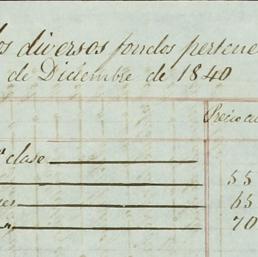 los diversos fondos pertene
de Diciembre de 1840
Precio co
clase
55
65
70